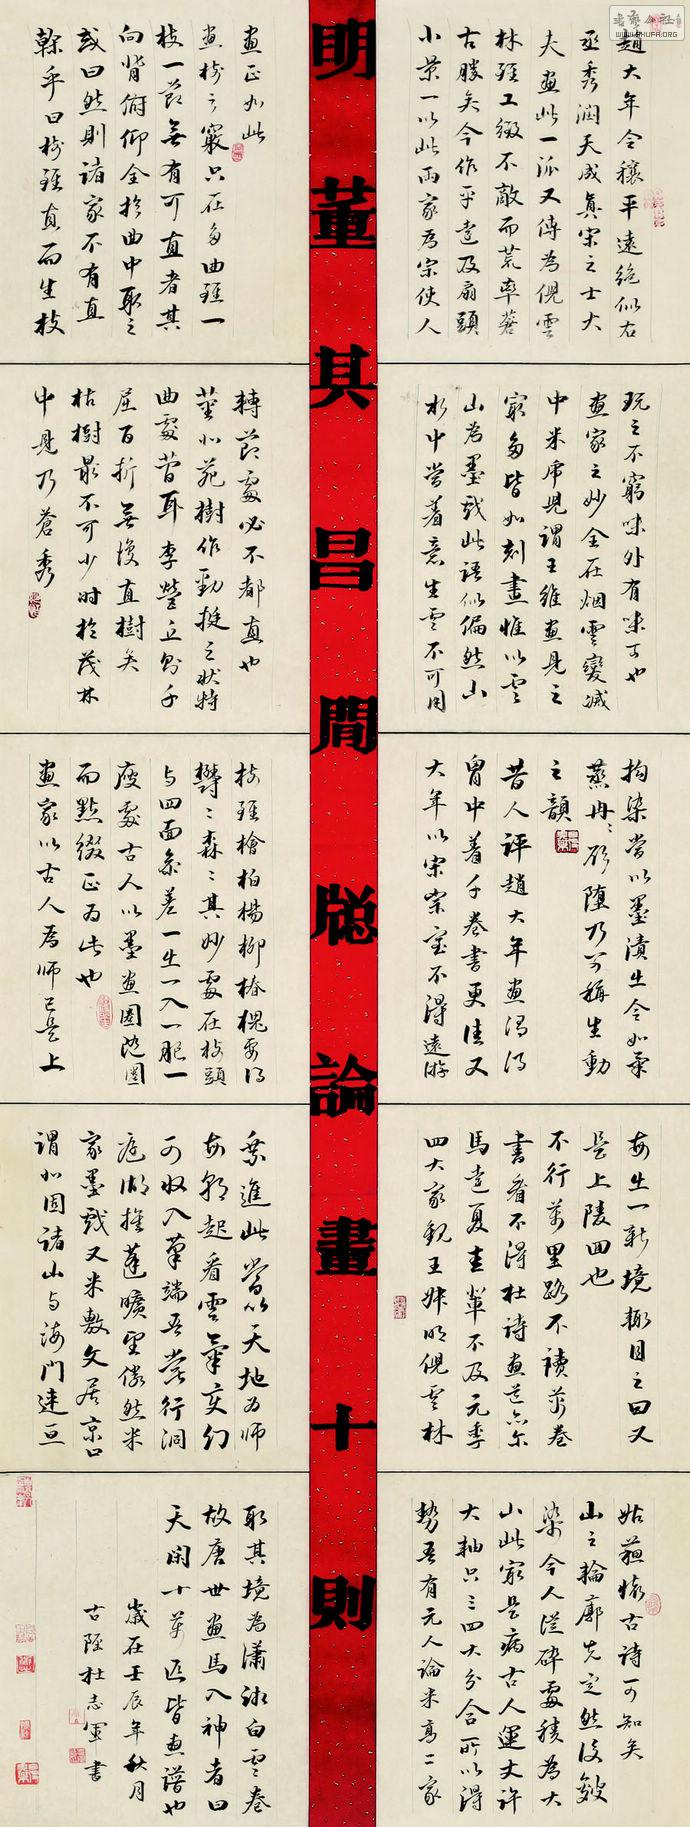 書藝公社
WWW.SHUFA.ORG
明董其昌閒牕論畫十則
趙大年令穰平遠絕似右
丞秀潤天成真宋之士大
夫畫此一派又傳為倪雲
林雖工緻不敵而荒率蒼
古勝矣今作平遠及扇頭
小景一以此兩家為宗使人
玩之不窮味外有味可也
畫家之妙全在烟雲變滅
中米虎兒謂王維畫見之
窮多皆如刻畫惟以雲
山為墨戲此語似偏然山
水中當着意生雲不可用
拘染當以墨漬出令如氣
蒸冉冉欲墮乃可稱生動
之韻
昔人評趙大年畫謂得
胷中着千卷書更佳又
大年以宋宗室不得遠游
每出一新境輒目之曰又
是上陵回也
不行萬里路不讀萬卷
書看不得杜詩畫道亦爾
馬遠夏圭輩不及元季
四大家觀王叔明倪雲林
姑蘇懷古詩可知矣
山之輪廓先定然後皴
染今人從碎處積為大
山此窮是病古人運大許
大軸只三四大分合所以得
勢吾有元人論米高二家
畫正如此
畫樹之竅只在多曲雖一
枝一節無有可直者其
向背俯仰全於曲中取之
或曰然則諸家不有直
榦乎曰樹雖直而生枝
轉節處必不都直也
董北苑樹作勁挺之狀特
曲處耳李營丘則千
屈百折無復直樹矣
枯樹最不可少時於茂林
中見乃蒼秀
樹雖檜柏楊柳椿槐要得
鬱鬱森森其妙處在樹頭
與四面參差一出一入一肥一
瘦處古人以墨畫圈隨圈
而點綴正為此也
畫家以古人為師已是上
乘進此當以天地為師
每朝起看雲氣變幻
可收入筆端吾嘗行洞
庭湖推蓬曠望儼然米
家墨戲又米敷文居京口
謂北固諸山與海門連亘
取其境為瀟湘白雲卷
故唐世畫馬入神者曰
天閑十萬匹皆畫譜也
歲在壬辰年秋月
古陘杜志軍書